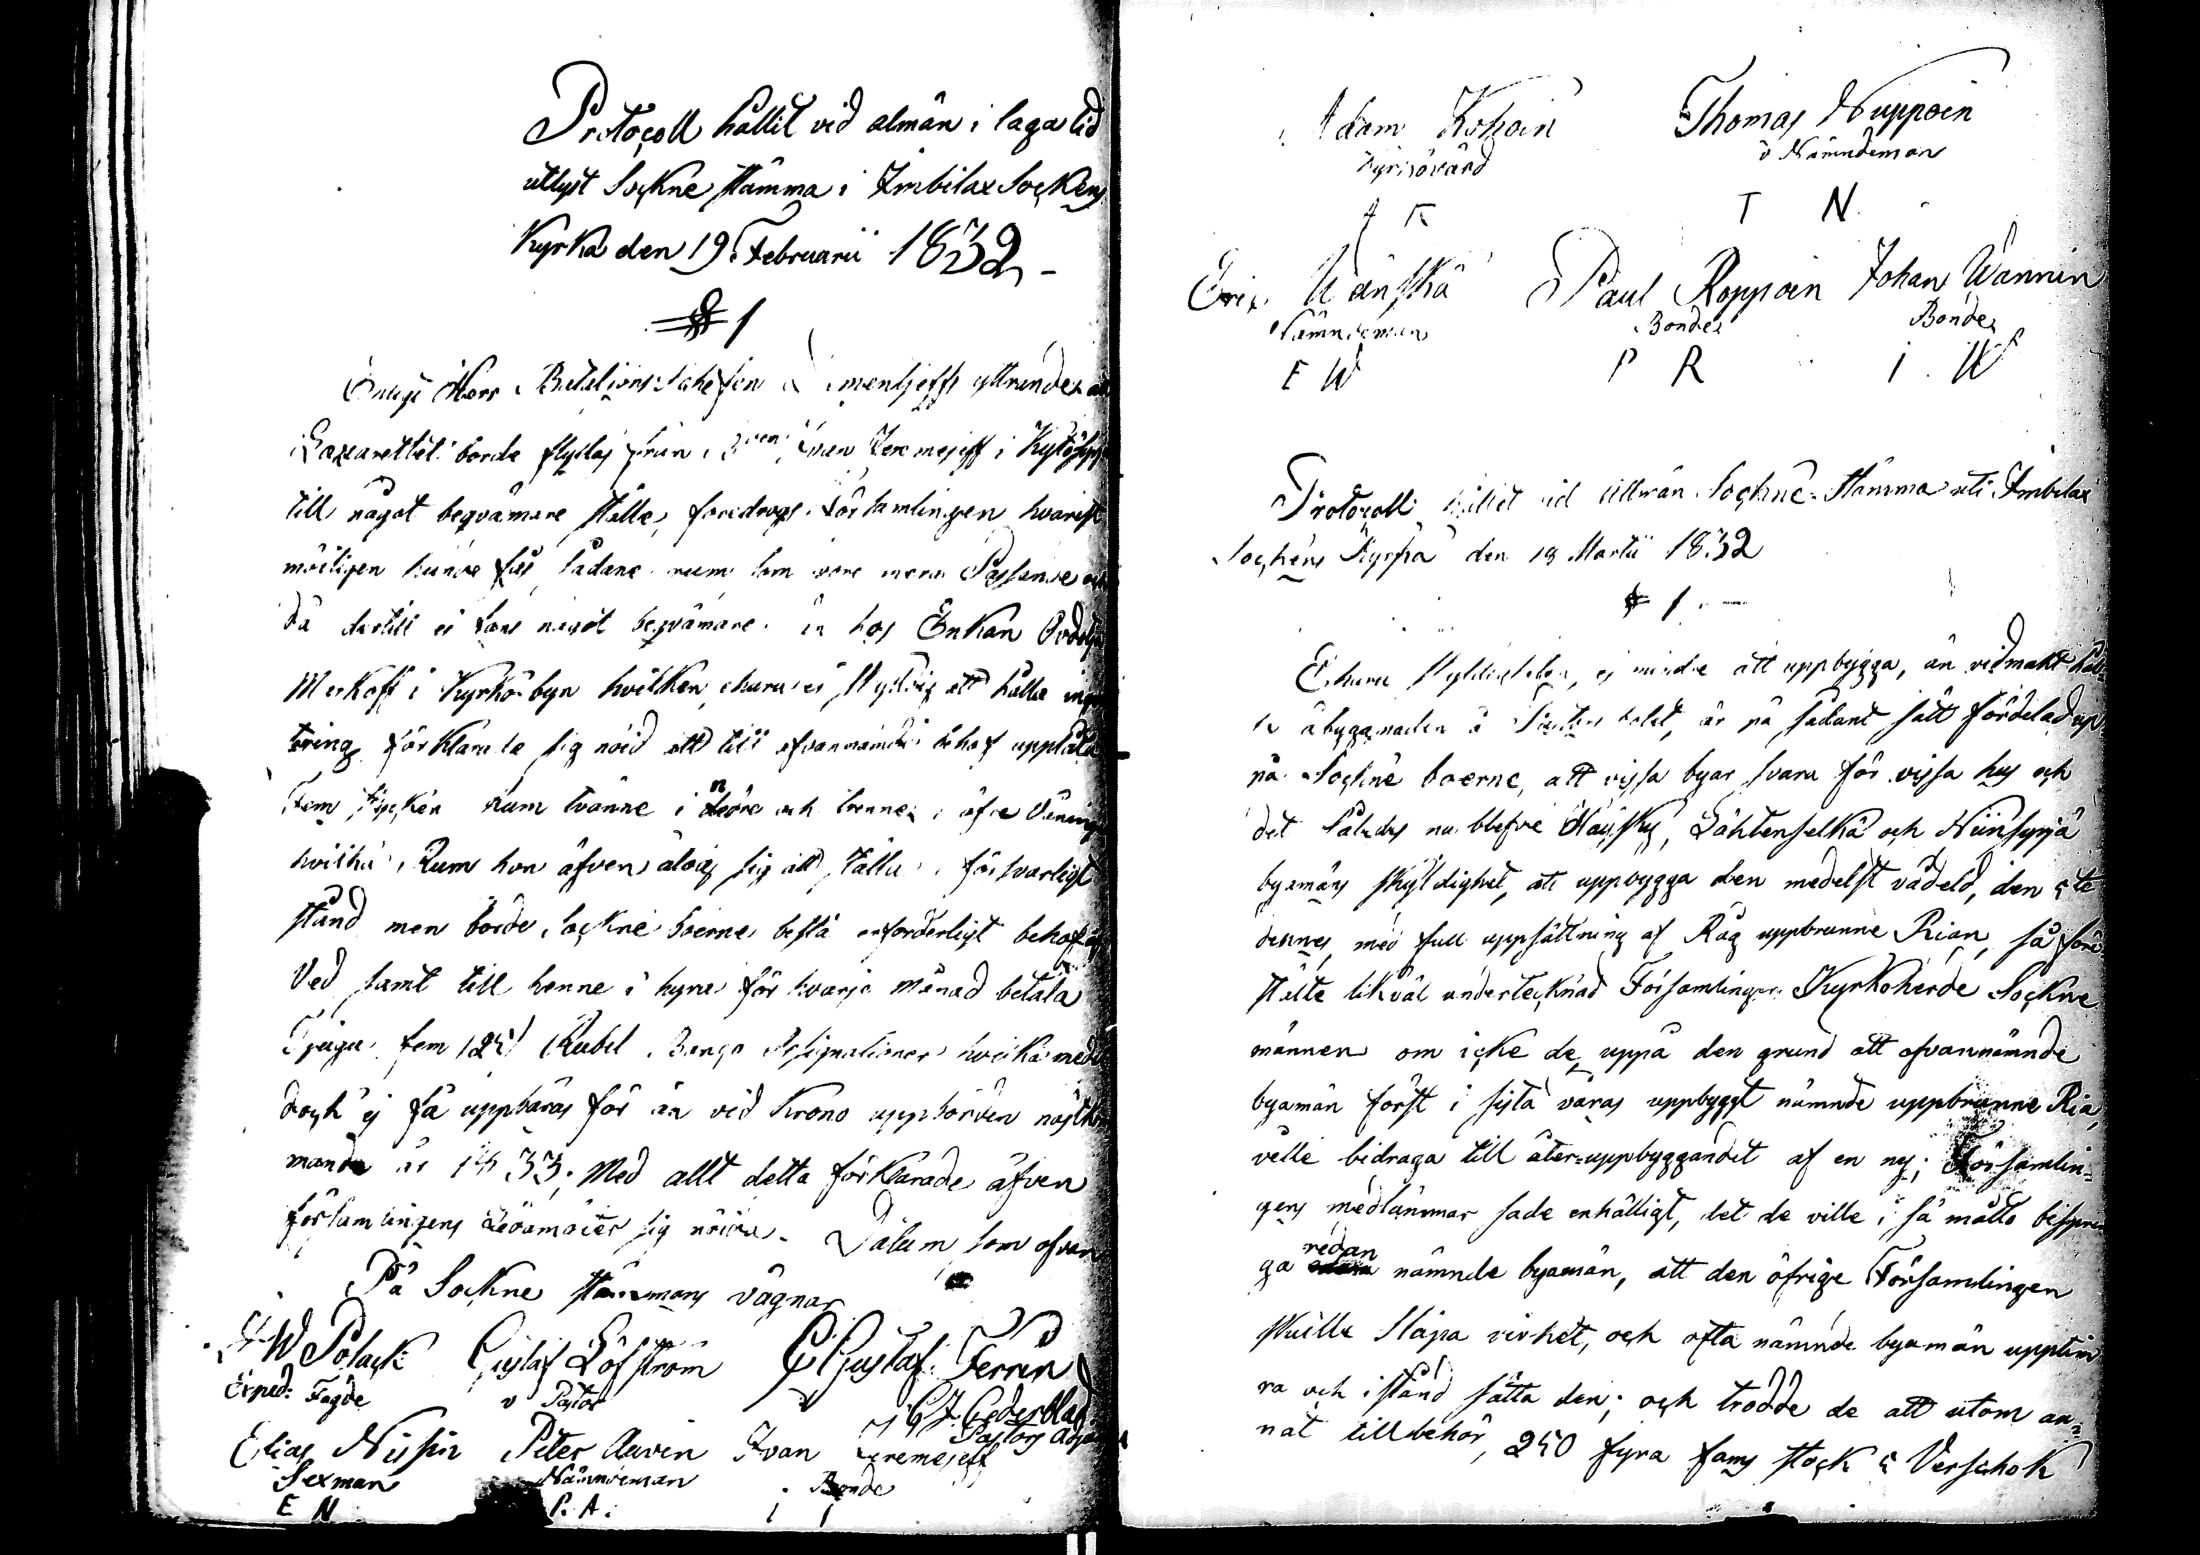 Protocoll hållit vid almän i laga tid
utlyst Sockne stämma i Imbilax Sockens
Kyrka den 19 Februarii 1832 -
§ 1
Enligt Herr Batalions yttrande att
Lazarettet borde flyttas från Ivan Jeremejeff i Kytösyrjä
till något beqvämare ställe, föredrogs Församlingen hvarest
möjligen kunde fås sådane rum som vore mera Passande och
då dertill ej fans något beqvämare än hos Enkan
Markoff i Kyrkobyn hvilken, ehuru ej skyldig att hålla inqvar
tering förklarade sig nöjd att till ofvannämnde behof upplåta
Fem stycken Rum tvänne i nedre och trenne i öfre Våningen
hvilka Rum hon äfven ålåg sig att ställa i försvarligt
stånd men borde Sockne boerne bestå erforderligt behof af
Ved samt till henne i hyra för hvarje månad betala
Tjugu fem /25/ Rubel Banco Assignationer hvilka medel
dock ej få uppbäras för än vid Krono uppbörden nästkom
mande år 1833. Med allt detta förklarade äfven
församlingens Ledamöter sig nöjda. Datum som ofvan
På Sockne stämmans vägnar
W Polack Gustaf Löfström Gustaf Ferrin
Exped: Fogde v Pastor
C J Cederblad
Pastors Adj
Elias Nissin Peter Auvin Ivan Jeremejeff
Sexman Nämndeman Bonde
E N P. A. i I
Adam Kohoin Thomas Nuppoin
Kyrkovärd v Nämndeman
A K T N.
Eric Wänskä Paul Roppoin Johan Wännin
Nämndeman Bonde Bonde
E W P R I W
Protocoll hållit vid allmän Sockne Stämma uti Imbilax
Sockens Kyrka den 18 Martii 1832
§ 1. -
Ehuru skyldigheten, ej mindre att uppbygga, än vidmakt hål-
la åbyggnaden å bolet, är på sådant sätt fördelad up-
på Sockne boerne, att vissa byar svara för vissa hus och
det således nu blefve Hauskys, Lähtenselkä och Niinsyrjä
byamäns skyldighet, att uppbygga den medelst vådeld, den 5te
dennes, med full uppsättning af Råg uppbrunne Rian, så före
stälte likväl undertecknad Församlingens Kyrkoherde Sockne
männen om icke de, uppå den grund att ofvannämnde
byamän först i sista våras uppbyggt nämnde uppbrunne Ria,
velle bidraga till åter-uppbyggandet af en ny; Församlin-
gens medlämmar sade enhälligt, det de ville i så måtto bispring
ga redan nämnde byamän, att den öfrige Församlingen
skulle släpa virket, och ofta nämnde byamän upptim
ra och i stånd sätta den; och trodde de att utom an-
nat tillbehör, 250 fyra fams stock 5 Verschok